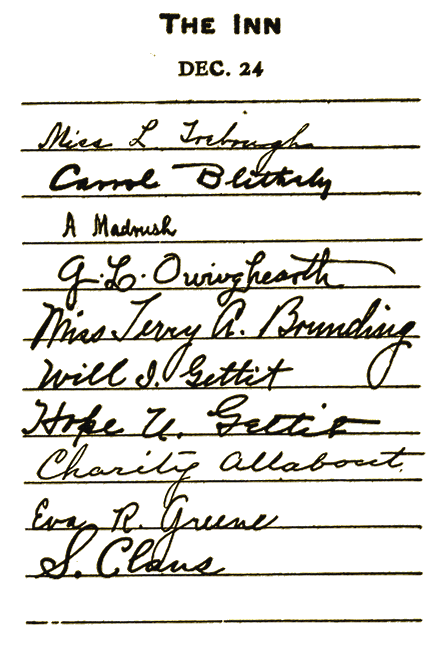 THE INN
DEC. 24
Miss L Toebough
Carrol Blithely
A Madrush
G. L. Owinghearth
Miss Terry A. Bounding
Will I. Gettit
Hope U. Gettit
Charity Allabout.
Eva R. Greene
S. Claus